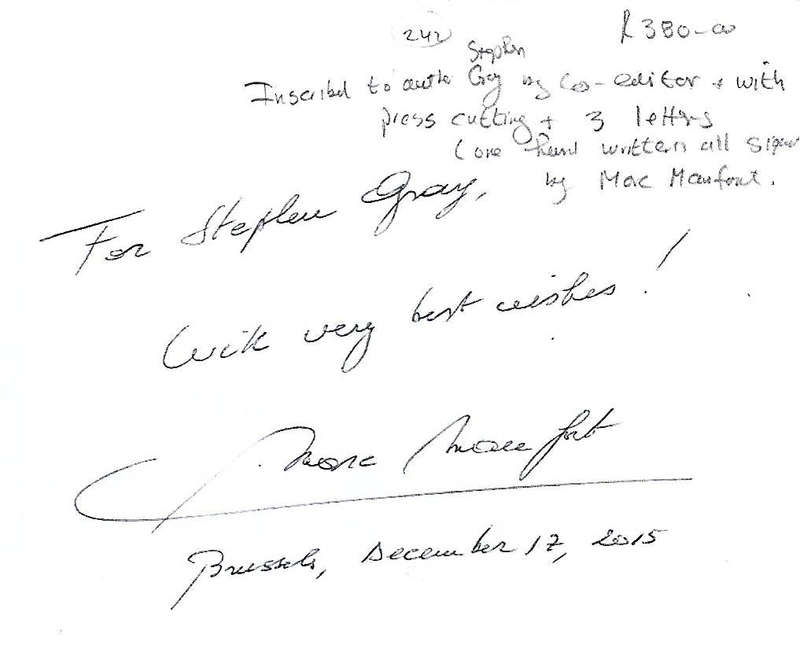 242
R380-00
Stephen
Inscribed to author Gray by Co-editor + with
press cutting + 3 letters
(one hand written all signed
by Marc Maufort.
For Stephen Gray,
With very best wishes!
Marc Maufort
Brussels, December 17, 2015